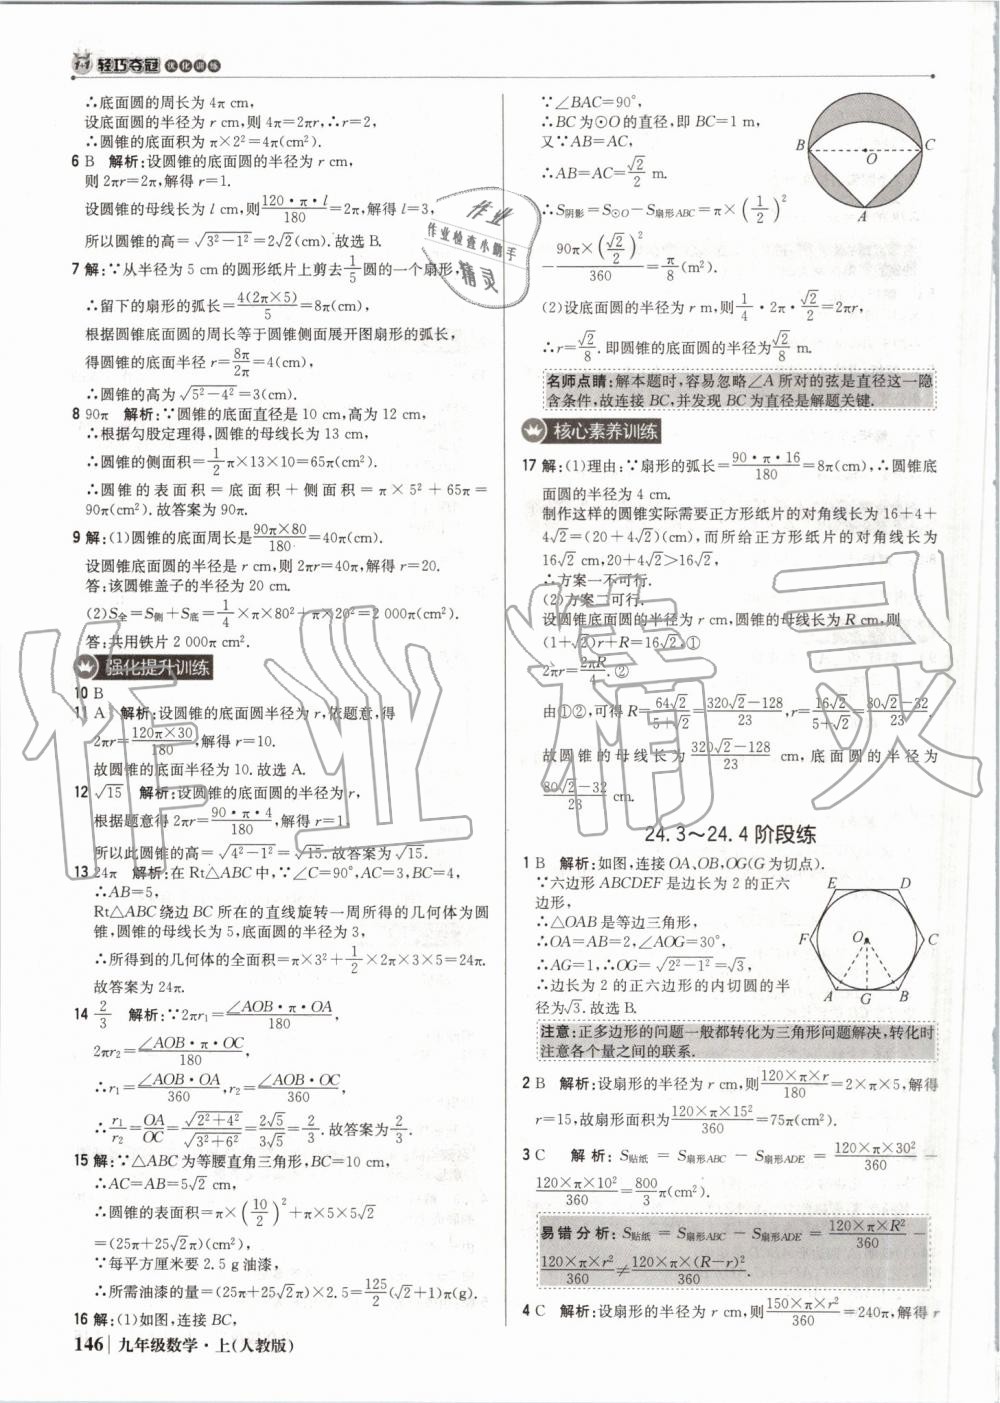 1+1 轻巧夺冠 优化训练
∴底面圆的周长为 4π cm,
设底面圆的半径为 r cm,则 4π=2πr,∴r=2,
∴圆锥的底面积为 π×2²=4π(cm²).
6 B 解析:设圆锥的底面圆的半径为 r cm,
则 2πr=2π,解得 r=1.
设圆锥的母线长为 l cm,则120·π·l/180=2π,解得 l=3,
所以圆锥的高=√(3²−1²)=2√2(cm).故选 B.
7 解:∵从半径为 5 cm 的圆形纸片上剪去1/5圆的一个扇形,
∴留下的扇形的弧长=4(2π×5)/5=8π(cm),
根据圆锥底面圆的周长等于圆锥侧面展开图扇形的弧长,
得圆锥的底面半径 r=8π/2π=4(cm),
∴圆锥的高为√(5²−4²)=3(cm).
8 90π 解析:∵圆锥的底面直径是 10 cm,高为 12 cm,
∴根据勾股定理得,圆锥的母线长为 13 cm,
∴圆锥的侧面积=1/2π×13×10=65π(cm²).
∴圆锥的表面积=底面积+侧面积=π×5²+65π=
90π(cm²).故答案为 90π.
9 解:(1)圆锥的底面周长是90π×80/180=40π(cm).
设圆锥底面圆的半径是 r cm,则 2πr=40π,解得 r=20.
答:该圆锥盖子的半径为 20 cm.
(2)S全=S侧+S底=1/4×π×80²+π×20²=2 000π(cm²).
答:共用铁片 2 000π cm².
强化提升训练
10 B
11 A 解析:设圆锥的底面圆半径为 r,依题意,得
2πr=120π×30/180,解得 r=10.
故圆锥的底面半径为 10.故选 A.
12 √15 解析:设圆锥的底面圆的半径为 r,
根据题意得 2πr=90·π·4/180,解得 r=1.
所以此圆锥的高=√(4²−1²)=√15.故答案为√15.
13 24π 解析:在 Rt△ABC 中,∵∠C=90°,AC=3,BC=4,
∴AB=5,
Rt△ABC 绕边 BC 所在的直线旋转一周所得的几何体为圆
锥,圆锥的母线长为 5,底面圆的半径为 3,
∴所得到的几何体的全面积=π×3²+1/2×2π×3×5=24π.
故答案为 24π.
14 2/3 解析:∵2πr₁=∠AOB·π·OA/180,
2πr₂=∠AOB·π·OC/180,
∴r₁=∠AOB·OA/360,r₂=∠AOB·OC/360,
∴r₁/r₂=OA/OC=√(2²+4²)/√(3²+6²)=2√5/3√5=2/3.故答案为2/3.
15 解:∵△ABC 为等腰直角三角形,BC=10 cm,
∴AC=AB=5√2 cm,
∴圆锥的表面积=π×(10/2)²+π×5×5√2
=(25π+25√2π)(cm²),
∵每平方厘米要 2.5 g 油漆,
∴所需油漆的量=(25π+25√2π)×2.5=125/2(√2+1)π(g).
16 解:(1)如图,连接 BC,
146 九年级数学·上(人教版)
∵∠BAC=90°,
∴BC 为⊙O 的直径,即 BC=1 m,
又∵AB=AC,
∴AB=AC=√2/2 m.
∴S阴影=S⊙O−S扇形ABC=π×(1/2)²
−90π×(√2/2)²/360=π/8(m²).
B O C A
(2)设底面圆的半径为 r m,则1/4·2π·√2/2=2πr,
∴r=√2/8.即圆锥的底面圆的半径为√2/8 m.
名师点睛:解本题时,容易忽略∠A 所对的弦是直径这一隐
含条件,故连接 BC,并发现 BC 为直径是解题关键.
核心素养训练
17 解:(1)理由:∵扇形的弧长=90·π·16/180=8π(cm),∴圆锥底
面圆的半径为 4 cm.
制作这样的圆锥实际需要正方形纸片的对角线长为 16+4+
4√2=(20+4√2)(cm),而所给正方形纸片的对角线长为
16√2 cm,20+4√2>16√2,
∴方案一不可行.
(2)方案二可行.
设圆锥底面圆的半径为 r cm,圆锥的母线长为 R cm,则
(1+√2)r+R=16√2,①
2πr=2πR/4.②
由①②,可得 R=64√2/(5+√2)=(320√2−128)/23,r=16√2/(5+√2)=(80√2−32)/23.
故圆锥的母线长为(320√2−128)/23 cm,底面圆的半径为
(80√2−32)/23 cm.
24.3~24.4 阶段练
1 B 解析:如图,连接 OA、OB,OG(G 为切点).
∵六边形 ABCDEF 是边长为 2 的正六
边形,
∴△OAB 是等边三角形,
∴OA=AB=2,∠AOG=30°,
∴AG=1,∴OG=√(2²−1²)=√3,
∴边长为 2 的正六边形的内切圆的半
径为√3.故选 B.
E D F O C A G B
注意:正多边形的问题一般都转化为三角形问题解决,转化时
注意各个量之间的联系.
2 B 解析:设扇形的半径为 r cm,则120×π×r/180=2×π×5,解得
r=15,故扇形面积为120×π×15²/360=75π(cm²).
3 C 解析:S贴纸=S扇形ABC−S扇形ADE=120×π×30²/360−
120×π×10²/360=800/3π(cm²).
易错分析:S贴纸=S扇形ABC−S扇形ADE=120×π×R²/360−
120×π×r²/360≠120×π×(R−r)²/360.
4 C 解析:设扇形的半径为 r cm,则150×π×r²/360=240π,解得 r
作业
作业检查小帮手
精灵
作业精灵